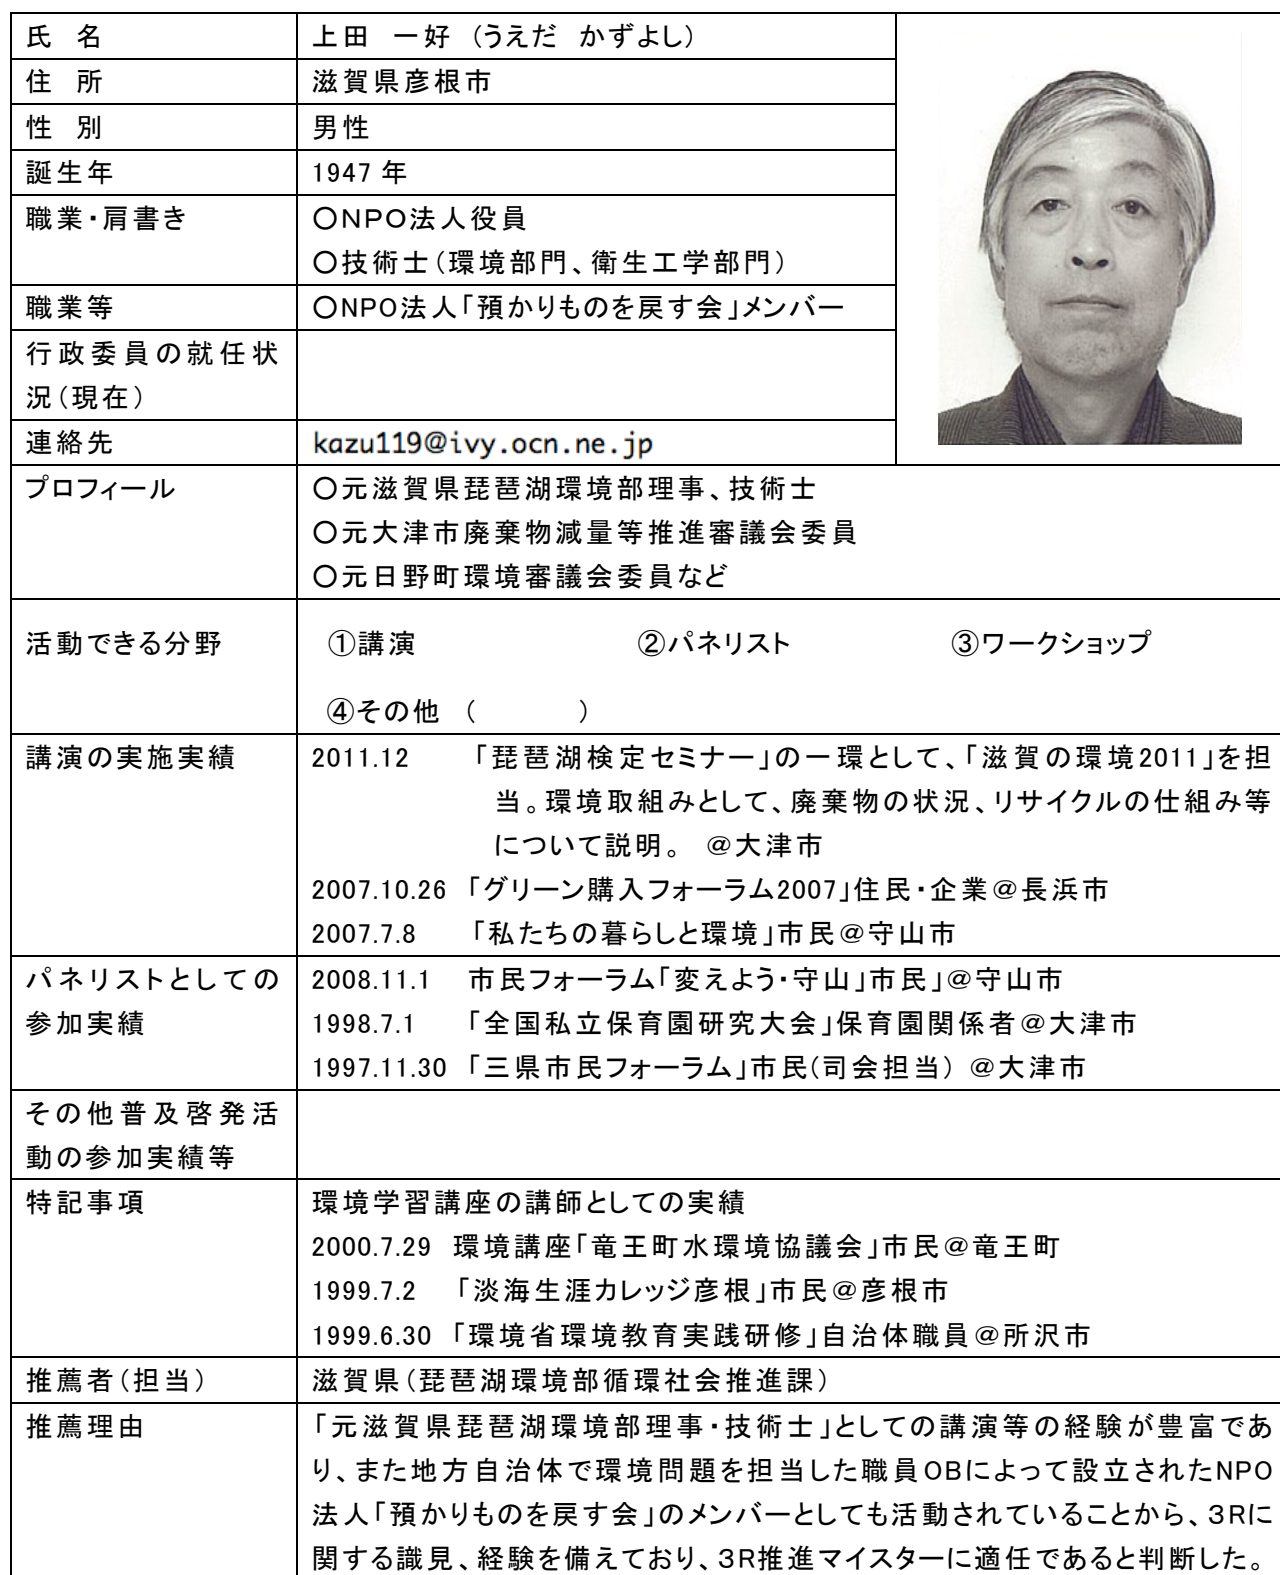 氏 名　上田 一好 (うえだ かずよし)
住 所　滋賀県彦根市
性 別　男性
誕生年　1947 年
職業・肩書き　〇NPO法人役員
〇技術士(環境部門、衛生工学部門)
職業等　〇NPO法人「預かりものを戻す会」メンバー
行政委員の就任状
況(現在)
連絡先　kazu119@ivy.ocn.ne.jp
プロフィール　〇元滋賀県琵琶湖環境部理事、技術士
〇元大津市廃棄物減量等推進審議会委員
〇元日野町環境審議会委員など
活動できる分野　①講演　②パネリスト　③ワークショップ
④その他 (　　　)
講演の実施実績　2011.12　「琵琶湖検定セミナー」の一環として、「滋賀の環境2011」を担
当。環境取組みとして、廃棄物の状況、リサイクルの仕組み等
について説明。 @大津市
2007.10.26 「グリーン購入フォーラム2007」住民・企業@長浜市
2007.7.8　「私たちの暮らしと環境」市民@守山市
パネリストとしての　2008.11.1　市民フォーラム「変えよう・守山」市民」@守山市
参加実績　1998.7.1　「全国私立保育園研究大会」保育園関係者@大津市
1997.11.30 「三県市民フォーラム」市民(司会担当) @大津市
その他普及啓発活
動の参加実績等
特記事項　環境学習講座の講師としての実績
2000.7.29 環境講座「竜王町水環境協議会」市民@竜王町
1999.7.2　「淡海生涯カレッジ彦根」市民@彦根市
1999.6.30 「環境省環境教育実践研修」自治体職員@所沢市
推薦者(担当)　滋賀県(琵琶湖環境部循環社会推進課)
推薦理由　「元滋賀県琵琶湖環境部理事・技術士」としての講演等の経験が豊富であ
り、また地方自治体で環境問題を担当した職員OBによって設立されたNPO
法人「預かりものを戻す会」のメンバーとしても活動されていることから、3Rに
関する識見、経験を備えており、3R推進マイスターに適任であると判断した。